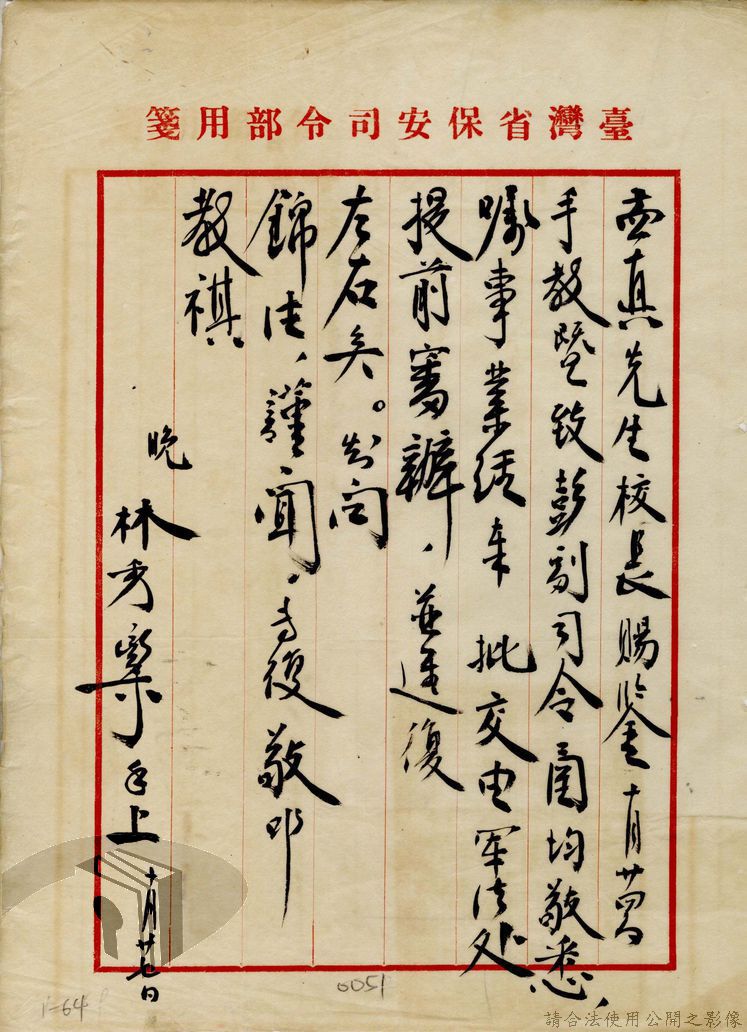 臺灣省保安司令部用箋
孟真先生校長賜鑒十月廿四日
手教暨致彭副司令函均敬悉、
囑事業經奉 批交由軍法處
提前審辦、並逕復
左右矣。知關
錦注、謹聞、專復敬叩
教祺
晚 林秀欒 手上 十月廿七日
0051
1-64
請合法使用公開之影像